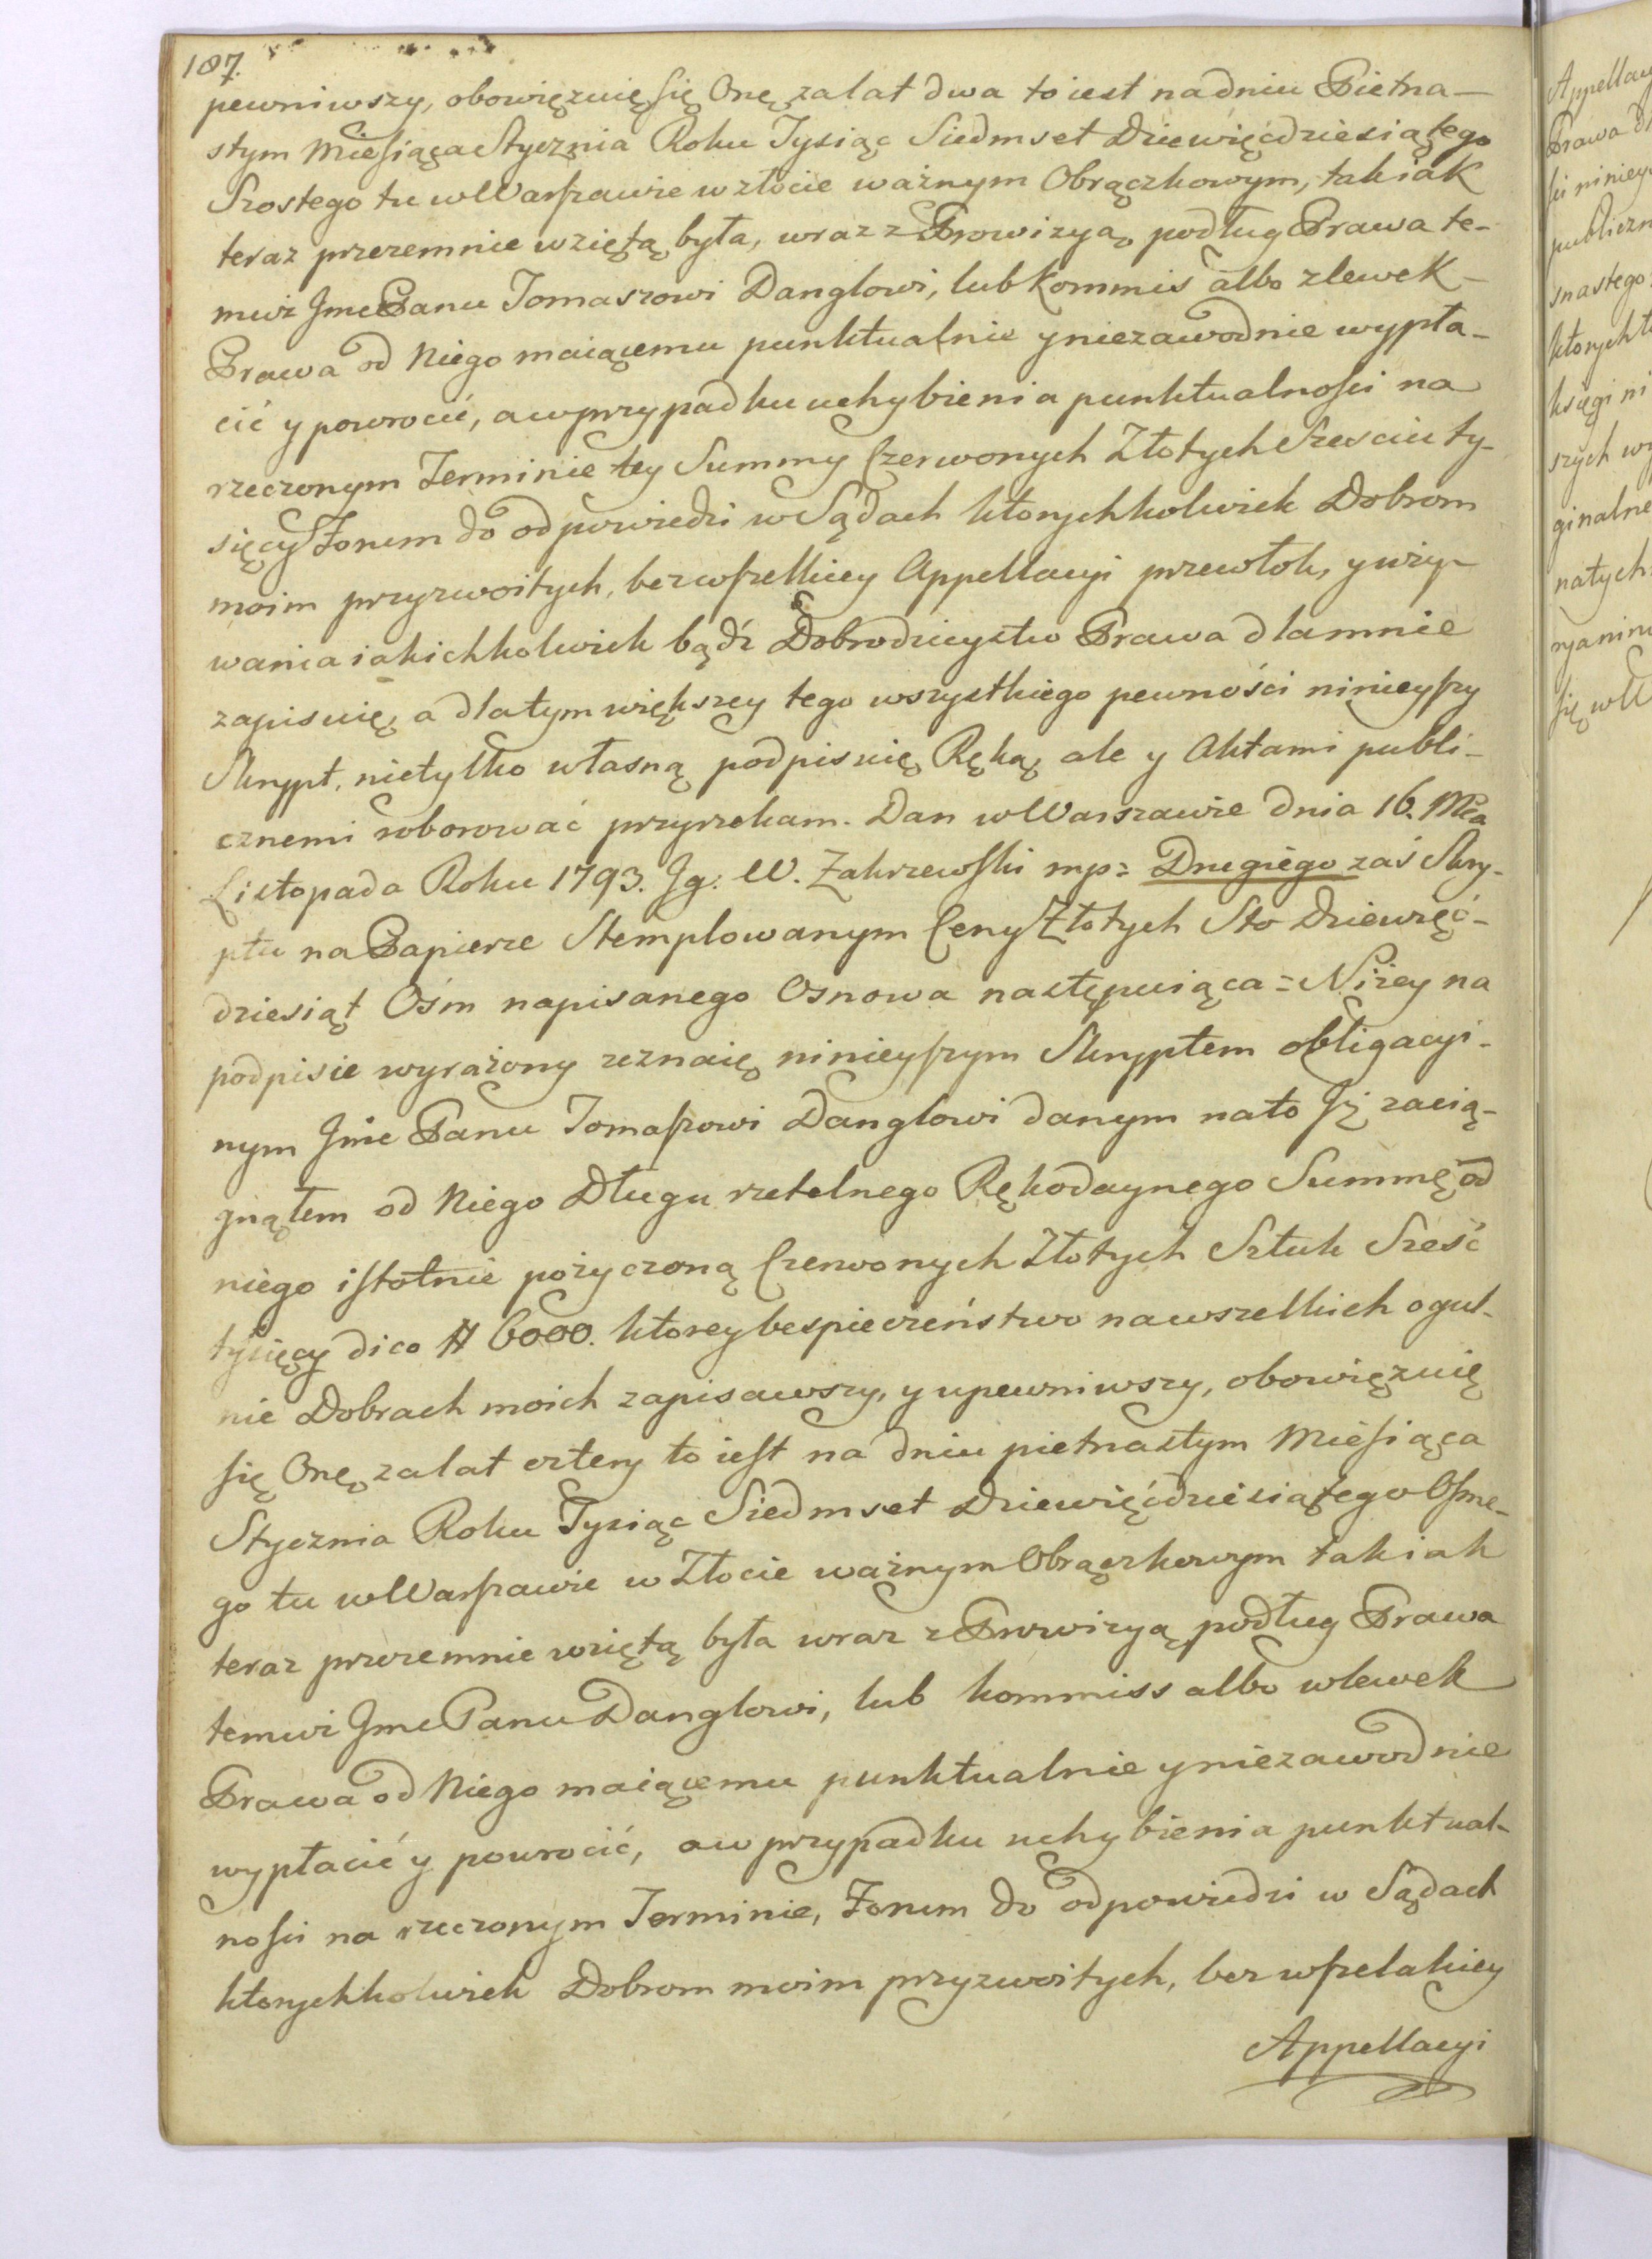 187.
pewniwszy, obowięzuię się Onę za lat dwa to iest na dniu Pietna-
stym Miesiąca Stycznia Roku Tysiąc Siedmset Dziewięćdziesiątego
Szostego tu w Warszawie w złocie ważnym Obrączkowym, tak iak
teraz przezemnie wziętą była, wraz z Prowizyą podług Prawa te-
muż Jmc Panu Tomaszowi Danglowi, lub kommis albo zlewek
Prawa od Niego maiącemu punktualnie y niezawodnie wypła-
cić y powrocić, a w przypadku uchybienia punktualności na
rzeczonym Terminie tey Summy Czerwonych Złotych Sześciu ty-
sięcy Forum do odpowiedzi w Sądach ktorychkolwiek Dobrom
moim przyzwoitych, bez wszelkiey Appellacyi przewłok, y uży-
wania iakichkolwiek bądź Dobrodzieystw Prawa dla mnie
zapisuię, a dla tym większey tego wszystkiego pewności ninieyszy
Skrypt, nietylko własną podpisuię Ręką, ale y Aktami publi-
cznemi roborować przyrzekam. Dan w Warszawie dnia 16. Mca
Listopada Roku 1793. Jg: W. Zakrzewski mp= Drugiego zaś Skry-
ptu na Papierze Stemplowanym Ceny Złotych Sto Dziewięć-
dziesiąt Ośm napisanego Osnowa następuiąca= Niżey na
podpisie wyrażony zeznaię ninieyszym Skryptem obligacyi-
nym Jmc Panu Tomaszowi Danglowi danym na to Jż zacią-
gnąłem od Niego Długu rzetelnego Rękodaynego Summę od
niego istotnie pożyczoną Czerwonych Złotych Sztuk Sześć
tysięcy dico # 6000. ktorey bespieczeństwo na wszelkich ogul-
nie Dobrach moich zapisawszy, y upewniwszy, obowięzuię
się Onę, za lat cztery to iest na dniu pietnastym Miesiąca
Stycznia Roku Tysiąc Siedmset Dziewięćdziesiątego Osme-
go tu w Warszawie w Złocie ważnym Obrączkowym tak iak
teraz przezemnie wziętą była wraz z Prowizyą podług Prawa
temuż Jmc Panu Danglowi, lub kommiss albo wlewek
Prawa od Niego maiącemu punktualnie y niezawodnie
wypłacić y powrocić, a w przypadku uchybienia punktual-
ności na rzeczonym Terminie, Forum do odpowiedzi w Sądach
ktorychkolwiek Dobrom moim przyzwoitych, bez wszelakiey
Appellacyi